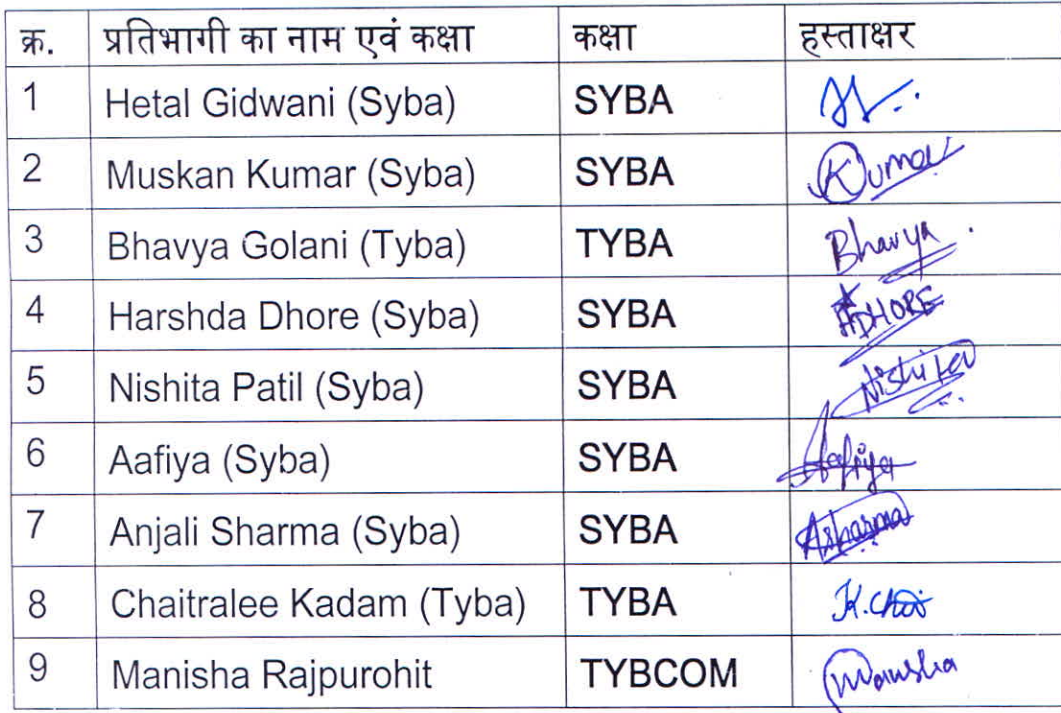 क्र. प्रतिभागी का नाम एवं कक्षा कक्षा हस्ताक्षर
1 Hetal Gidwani (Syba) SYBA
2 Muskan Kumar (Syba) SYBA Kumar
3 Bhavya Golani (Tyba) TYBA Bhavya
4 Harshda Dhore (Syba) SYBA DHORE
5 Nishita Patil (Syba) SYBA Nishita
6 Aafiya (Syba) SYBA Aafiya
7 Anjali Sharma (Syba) SYBA Asharma
8 Chaitralee Kadam (Tyba) TYBA
9 Manisha Rajpurohit TYBCOM Manisha